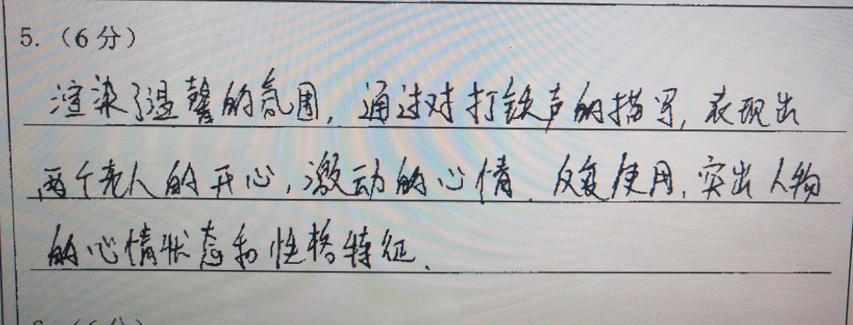 5.（6分）
渲染了温馨的氛围，通过对打铁声的描写，表现出
两个老人的开心，激动的心情．反复使用，突出人物
的心情状态和性格特征．